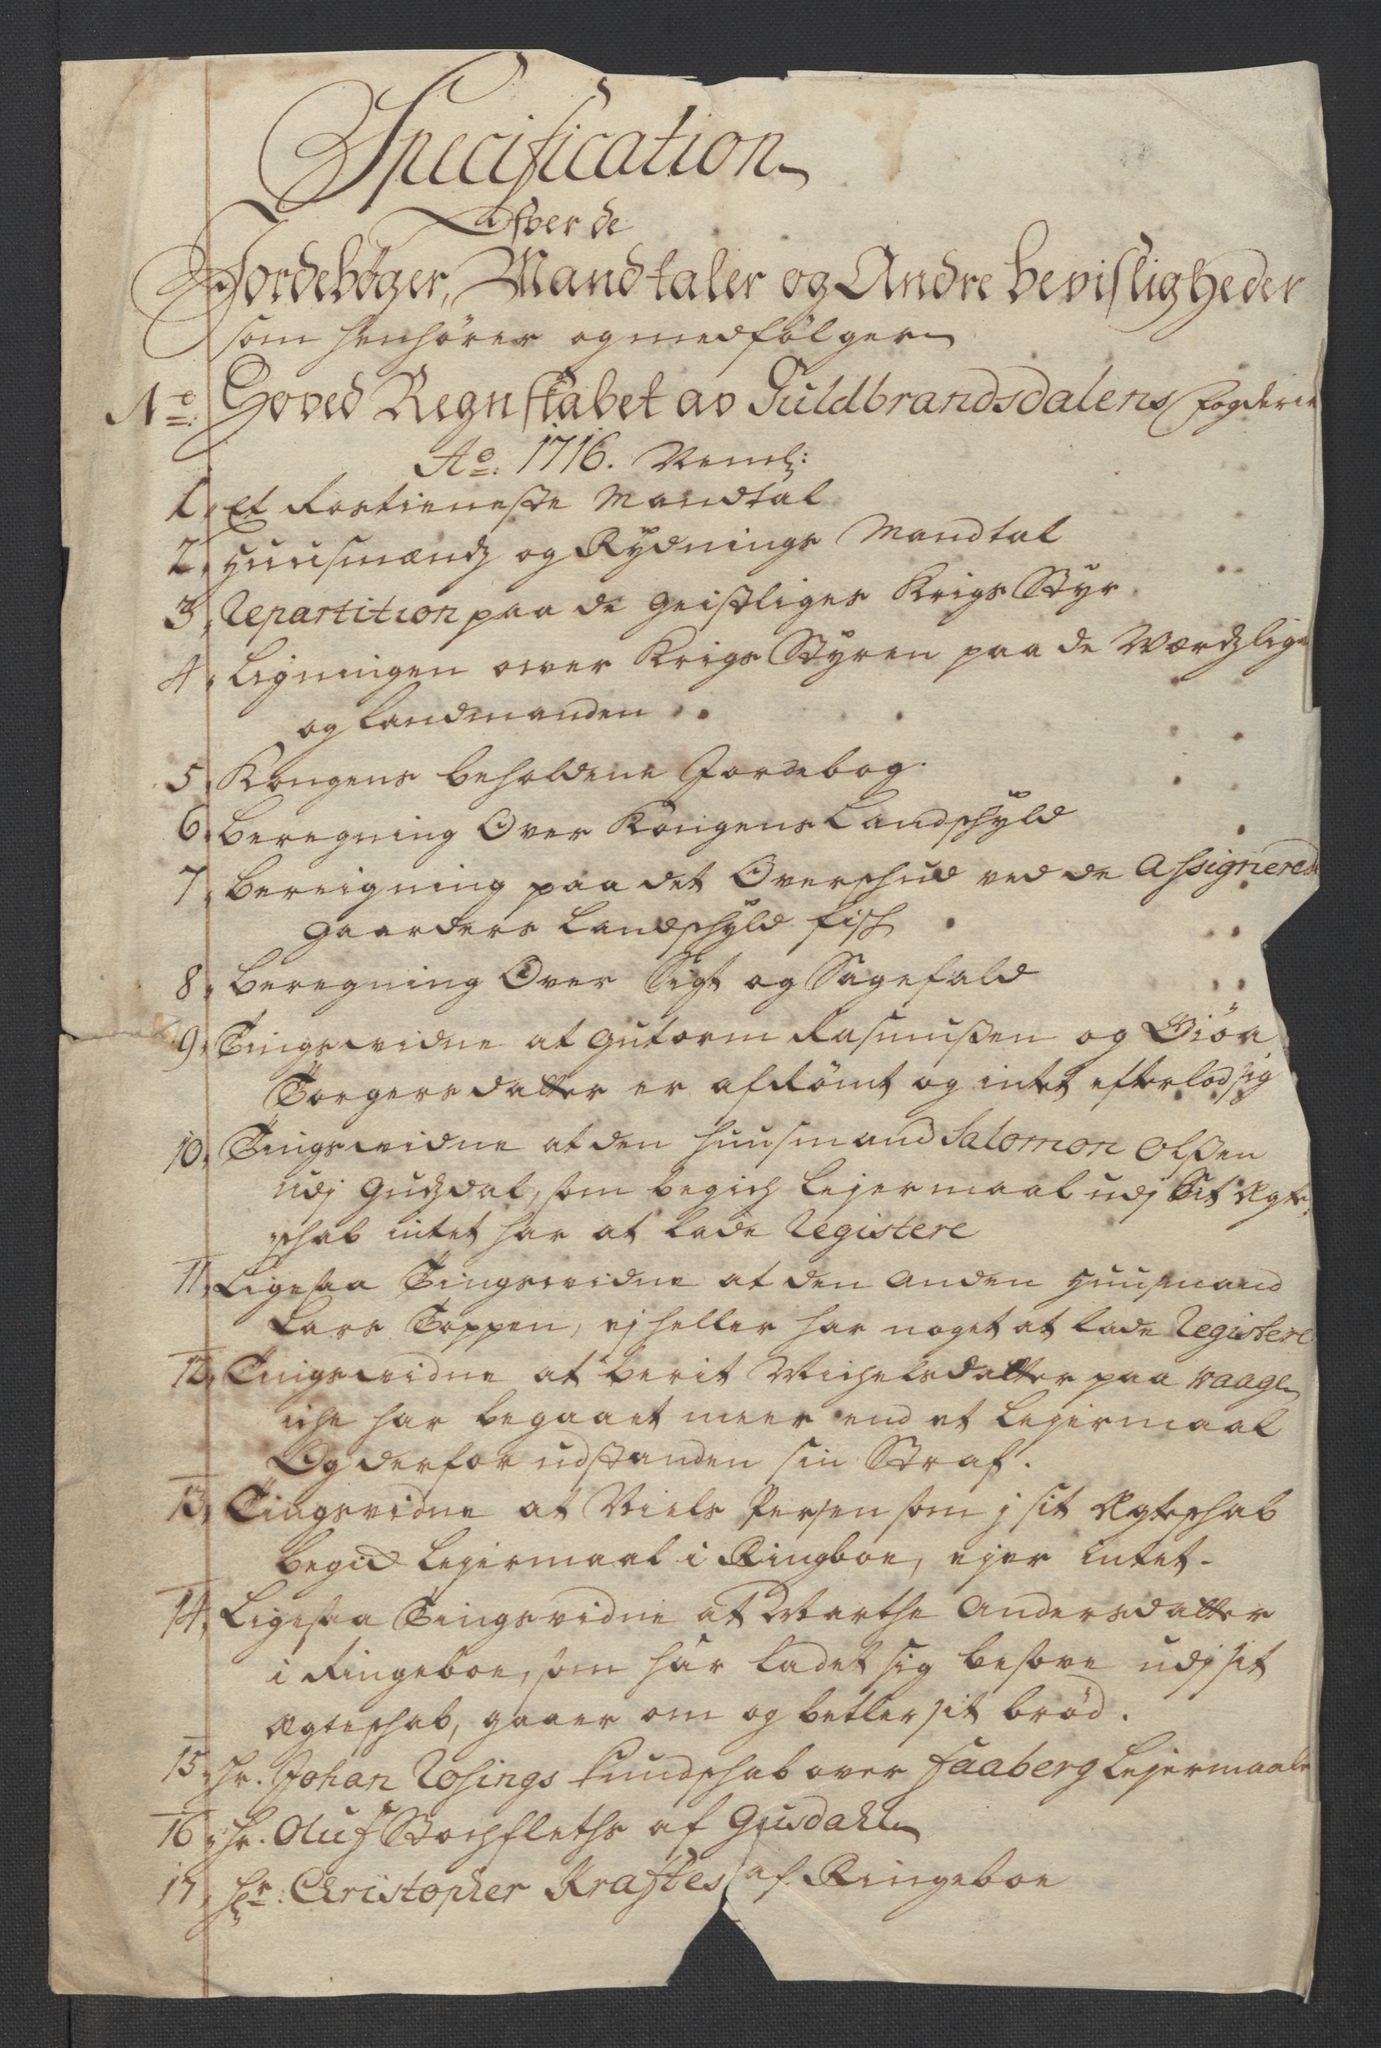 Specification
Ofver de
Jordebøger, Mandtaler og Andre beviisligheder
som henhører og medfølger
No: Hoved Regnskabet av Guldbrandsdalens Fogderie
Ao: 1716. Neml:
1. Et Rostieneste Mandtal
2. Huusmændz og Rydnings Mandtal
3. Repartition paa de Geistliges Krigs Styr
4. Ligningen over Krigs Styren paa de Værdzlige
og Landmanden
5. Kongens beholdene Jordebog.
6. Beregning Over Kongens Landschyld
7. Bereigning paa det Overschud ved de Assignerede
Gaarders Landschyld fisch
8. Beregning Over Sigt og Sagefald
9. Tingsvidne at Gutorm Rasmusßen og Giöa
Torgersdatter er afRömt og intet efterlod sig
10. Tingsvidne at den huusmand Salomon Olßen
udj Gudzdal, som begich Lejermaal udj Sit Ægte,
schab intet har at lade Registere
11. Ligesaa Tingsvidne at den anden Huusmand
Lars Toppen, ej heller har noget at lade Registere
12. Tingsvidne at Berit Michelsdatter paa Vaage
iche har begaaet meer end et Lejermaal
Og derfor udstanden sin Straf.
13. Tingsvidne at Niels Persen som j sit Ægteschab
begid Lejermaal i Ringboe, ejer intet.
14. Ligesaa Tingsvidne at Marthe Andersdatter
i Ringeboe, som har ladet sig besove udj sit
Ægteschab, gaaer om og betler sit brød.
15. Hr. Johan Rosings Kundschab over Faaberg Lejermaale
16. Hr. Oluf Stochfleths af Gusdahl
17. Hr: Christopher Kraftes af Ringeboe